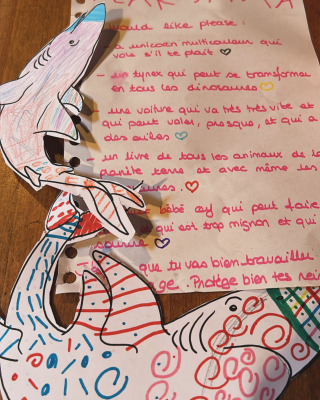 would like please :
unicorn multicouleur qui
vole s'il te plaît
- un tyrex qui peut se transformer
en tous les dinosaures
- une voiture qui va très très vite et
qui peut voler, presque, et qui a
des ailes
- un livre de tous les animaux de la
planète terre et avec même les
bébé qui peut faire
qui est trop mignon et qui
que tu vas bien travailler
Protège bien tes